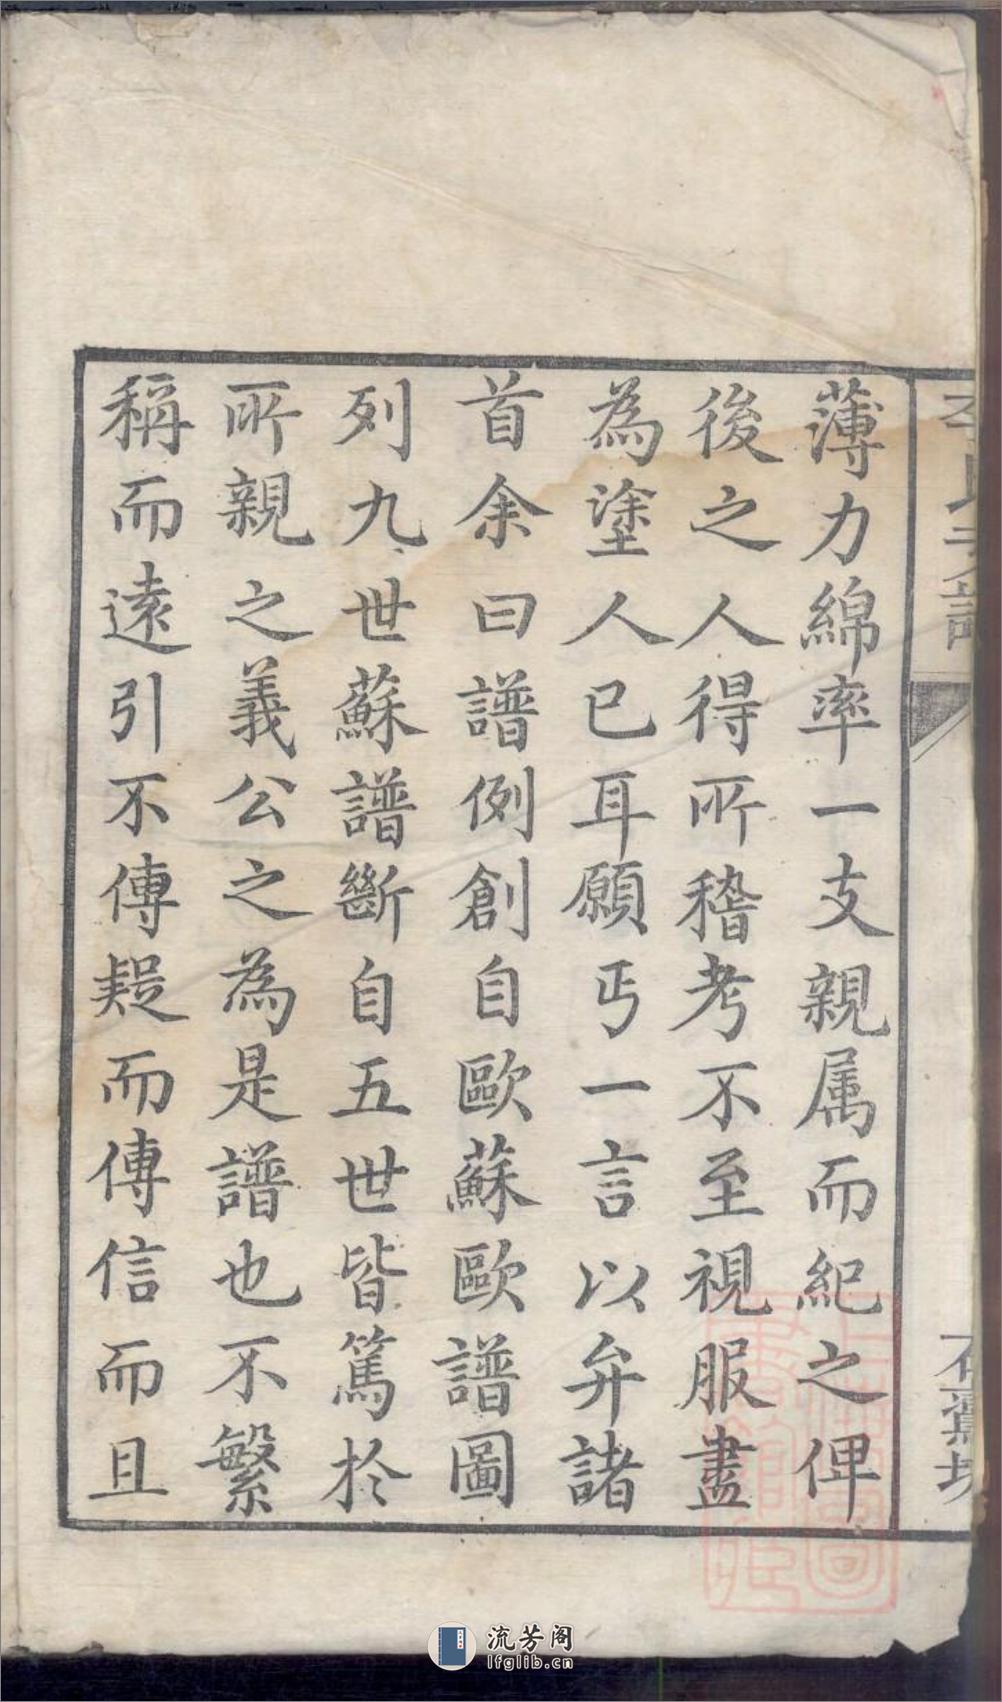 薄力綿率一支親属而紀之俾
後之人得所稽考不至視服盡
為塗人已耳願丐一言以弁諸
首余曰譜例創自歐蘇歐譜圖
列九世蘇譜斷自五世皆篤於
所親之義公之為是譜也不繁
稱而遠引不傳疑而傳信而且
流芳阁
lfglib.cn